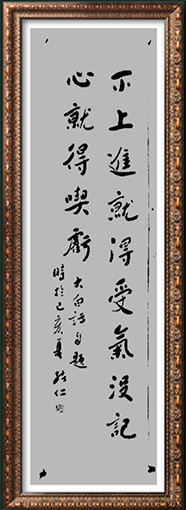 不上進就得受氣沒記
心就得喫虧
大白話自題
時於己亥夏